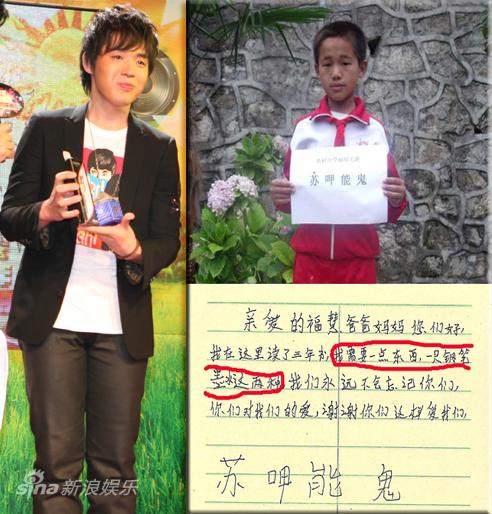 苏呷能鬼
亲爱的福慧爸爸妈妈您们好,
我在这里读了三年书,我需要一点东西,一只钢笔
墨水这两种 我们永远不会忘记你们,
你们对我们的爱,谢谢你们这样爱我们,
苏呷能鬼
sina新浪娱乐